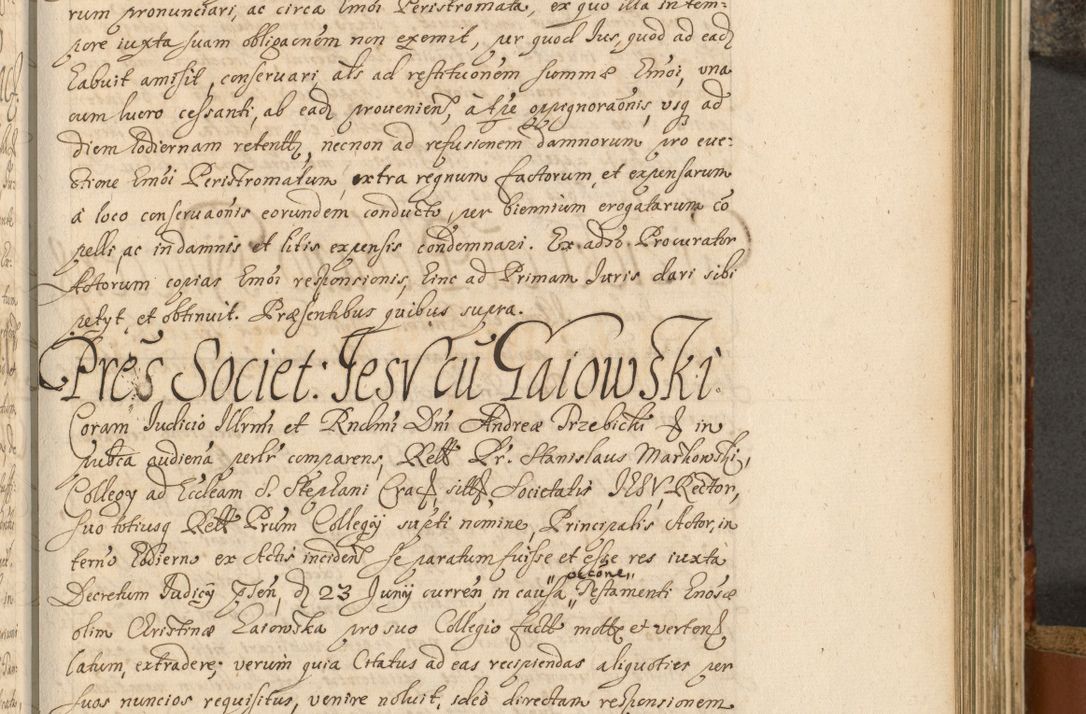 rum pronunciari, ac circa Emôi Peristromata, ex quo illa in tem:
pore iuxta suam obligaonem non exemit, per quod Ius, quod ad ead
habuit amisit, conservari, als ad restituonem summæ Emôi, una
cum lucro cessanti, ab ead provenien, à tpe oppignoraonis, usq ad
diem hodiernam retent, necnon ad refusionem damnorum pro eve:
ctione Emôi Peristromatum, extra regnum factorum, et expensarum
à loco conservaonis eorundem conducto, per biennium erogatarum, co
pelli, ac in damnis et litis expensis condemnari. Ex adso Procurator
Actorum copias Emôi responsionis, hinc ad Primam Iuris dari sibi
petyt, et obtinuit. Præsentibus quibus supra.
Pres Societ: Iesv cu Gaiowski.
Coram Iudicio Illrmi et Rndmi Dni Andreæ Trzebicki in
pubca audiena perlr comparens, Rel Pr. Stanislaus Markowski,
Collegy ad Eccleam S. Stephani Crac, sit, Societatis IESV Rector,
suo totiusq Rel Prum Collegij supsti nomine, Principalis Actor, in
terno hodierno ex Actis inciden se paratum fuisse et esse res iuxta
Decretum Iudicÿ psen, d 23 Junÿ curren in causa "occone" Testamenti Enosæ
olim Christinæ Gaiowska pro suo Collegio fact mot et verten
latum, extradere; verum quia Citatus ad eas recipiendas aliquoties per
suos nuncios requisitus, venire noluit, ideò directam responsionem